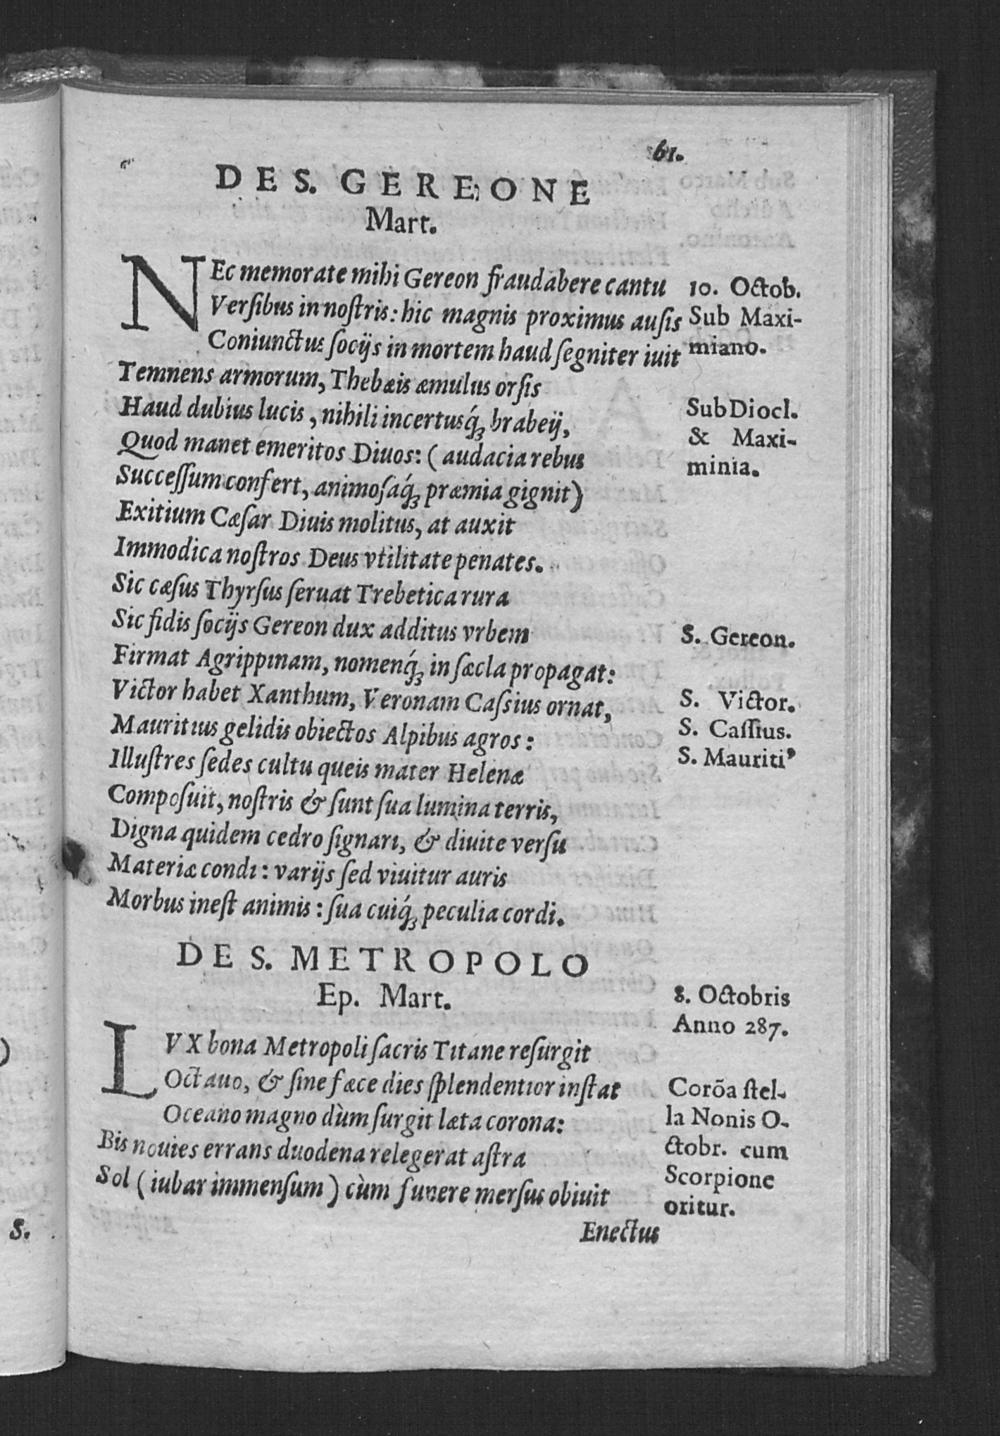 61.
DE S. GEREONE
Mart.
NEc memorate mihi Gereon fraudabere cantu
Versibus in nostris: hic magnis proximus ausis
Coniunctus socijs in mortem haud segniter iuit
Temnens armorum, Thebæis æmulus orsis
Haud dubius lucis, nihili incertusq́; brabeij,
Quod manet emeritos Diuos: (audacia rebus
Successum confert, animosaq́; præmia gignit)
Exitium Cæsar Diuis molitus, at auxit
Immodica nostros Deus vtilitate penates.
Sic cæsus Thyrsus seruat Trebetica rura
Sic fidis socijs Gereon dux additus vrbem
Firmat Agrippinam, nomenq́; in sæcla propagat:
Victor habet Xanthum, Veronam Cassius ornat,
Mauritius gelidis obiectos Alpibus agros:
Illustres sedes cultu queis mater Helenæ
Composuit, nostris & sunt sua lumina terris,
Digna quidem cedro signari, & diuite versu
Materiæ condi: varijs sed viuitur auris
Morbus inest animis: sua cuiq́; peculia cordi.
10. Octob.
Sub Maxi-
miano.
Sub Diocl.
& Maxi-
minia.
S. Gereon.
S. Victor.
S. Cassius.
S. Mauriti⁹
DE S. METROPOLO
Ep. Mart.
LVX bona Metropoli sacris Titane resurgit
Octauo, & sine fæce dies splendentior instat
Oceano magno dùm surgit læta corona:
Bis nouies errans duodena relegerat astra
Sol (iubar immensum) cùm funere mersus obiuit
Enectus
8. Octobris
Anno 287.
Corōa stel-
la Nonis O-
ctobr. cum
Scorpione
oritur.
S.